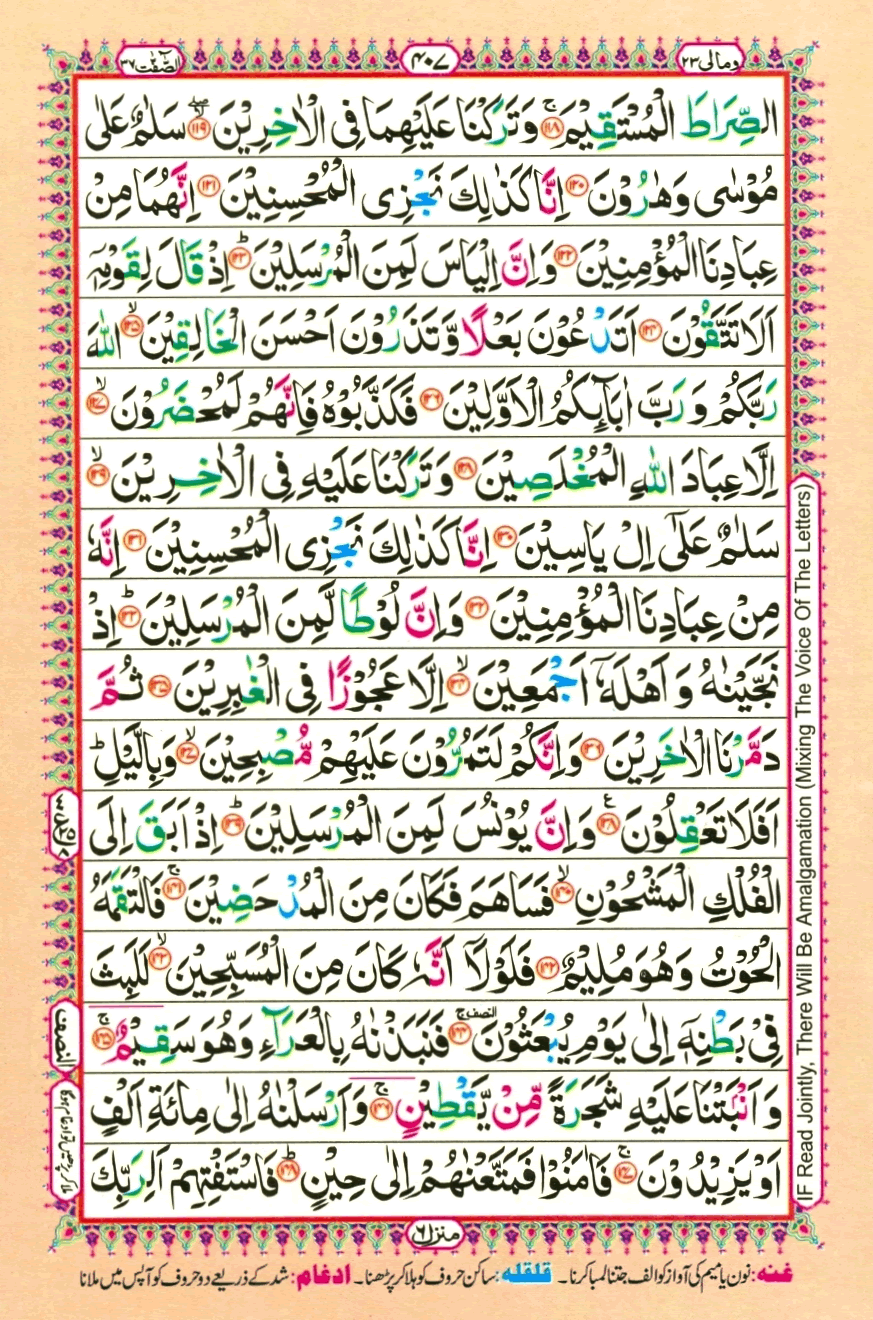 وما لی ۲۳
۴۰۷
الصّٰٓفّٰت ۳۷
الصِّرَاطَ الْمُسْتَقِیْمَ ۚ‏﴿۱۱۸﴾ وَ تَرَكْنَا عَلَیْهِمَا فِی الْاٰخِرِیْنَ ۙ‏﴿۱۱۹﴾ سَلٰمٌ عَلٰی
مُوْسٰی وَ هٰرُوْنَ ﴿۱۲۰﴾ اِنَّا كَذٰلِكَ نَجْزِی الْمُحْسِنِیْنَ ﴿۱۲۱﴾ اِنَّهُمَا مِنْ
عِبَادِنَا الْمُؤْمِنِیْنَ ﴿۱۲۲﴾ وَ اِنَّ اِلْیَاسَ لَمِنَ الْمُرْسَلِیْنَ ؕ‏﴿۱۲۳﴾ اِذْ قَالَ لِقَوْمِهٖۤ
اَلَا تَتَّقُوْنَ ﴿۱۲۴﴾ اَتَدْعُوْنَ بَعْلًا وَّ تَذَرُوْنَ اَحْسَنَ الْخَالِقِیْنَ ۙ‏﴿۱۲۵﴾ اللّٰهَ
رَبَّكُمْ وَ رَبَّ اٰبَآىِٕكُمُ الْاَوَّلِیْنَ ﴿۱۲۶﴾ فَكَذَّبُوْهُ فَاِنَّهُمْ لَمُحْضَرُوْنَ ۙ‏﴿۱۲۷﴾
اِلَّا عِبَادَ اللّٰهِ الْمُخْلَصِیْنَ ﴿۱۲۸﴾ وَ تَرَكْنَا عَلَیْهِ فِی الْاٰخِرِیْنَ ۙ‏﴿۱۲۹﴾
سَلٰمٌ عَلٰۤی اِلْ یَاسِیْنَ ﴿۱۳۰﴾ اِنَّا كَذٰلِكَ نَجْزِی الْمُحْسِنِیْنَ ﴿۱۳۱﴾ اِنَّهٗ
مِنْ عِبَادِنَا الْمُؤْمِنِیْنَ ﴿۱۳۲﴾ وَ اِنَّ لُوْطًا لَّمِنَ الْمُرْسَلِیْنَ ؕ‏﴿۱۳۳﴾ اِذْ
نَجَّیْنٰهُ وَ اَهْلَهٗۤ اَجْمَعِیْنَ ۙ‏﴿۱۳۴﴾ اِلَّا عَجُوْزًا فِی الْغٰبِرِیْنَ ﴿۱۳۵﴾ ثُمَّ
دَمَّرْنَا الْاٰخَرِیْنَ ﴿۱۳۶﴾ وَ اِنَّكُمْ لَتَمُرُّوْنَ عَلَیْهِمْ مُّصْبِحِیْنَ ۙ‏﴿۱۳۷﴾ وَ بِالَّیْلِ ؕ
اَفَلَا تَعْقِلُوْنَ ﴿۱۳۸﴾ ع وَ اِنَّ یُوْنُسَ لَمِنَ الْمُرْسَلِیْنَ ؕ‏﴿۱۳۹﴾ اِذْ اَبَقَ اِلَی
الْفُلْكِ الْمَشْحُوْنِ ۙ‏﴿۱۴۰﴾ فَسَاهَمَ فَكَانَ مِنَ الْمُدْحَضِیْنَ ۚ‏﴿۱۴۱﴾ فَالْتَقَمَهُ
الْحُوْتُ وَ هُوَ مُلِیْمٌ ﴿۱۴۲﴾ فَلَوْلَاۤ اَنَّهٗ كَانَ مِنَ الْمُسَبِّحِیْنَ ۙ‏﴿۱۴۳﴾ لَلَبِثَ
فِیْ بَطْنِهٖۤ اِلٰی یَوْمِ یُبْعَثُوْنَ النصف ۚ‏﴿۱۴۴﴾ فَنَبَذْنٰهُ بِالْعَرَآءِ وَ هُوَ سَقِیْمٌ ۚ‏﴿۱۴۵﴾
وَ اَنْۢبَتْنَا عَلَیْهِ شَجَرَةً مِّنْ یَّقْطِیْنٍ ۚ‏﴿۱۴۶﴾ وَ اَرْسَلْنٰهُ اِلٰی مِائَةِ اَلْفٍ
اَوْ یَزِیْدُوْنَ ۚ‏﴿۱۴۷﴾ فَاٰمَنُوْا فَمَتَّعْنٰهُمْ اِلٰی حِیْنٍ ؕ‏﴿۱۴۸﴾ فَاسْتَفْتِهِمْ اَلِرَبِّكَ
النصف
IF Read Jointly, There Will Be Amalgamation (Mixing The Voice Of The Letters)
منزل ۶
غنہ: نون یا میم کی آواز کو الف جتنا لمبا کرنا۔ قلقلہ: ساکن حروف کو ہلا کر پڑھنا۔ ادغام: شد کے ذریعے دو حروف کو آپس میں ملانا